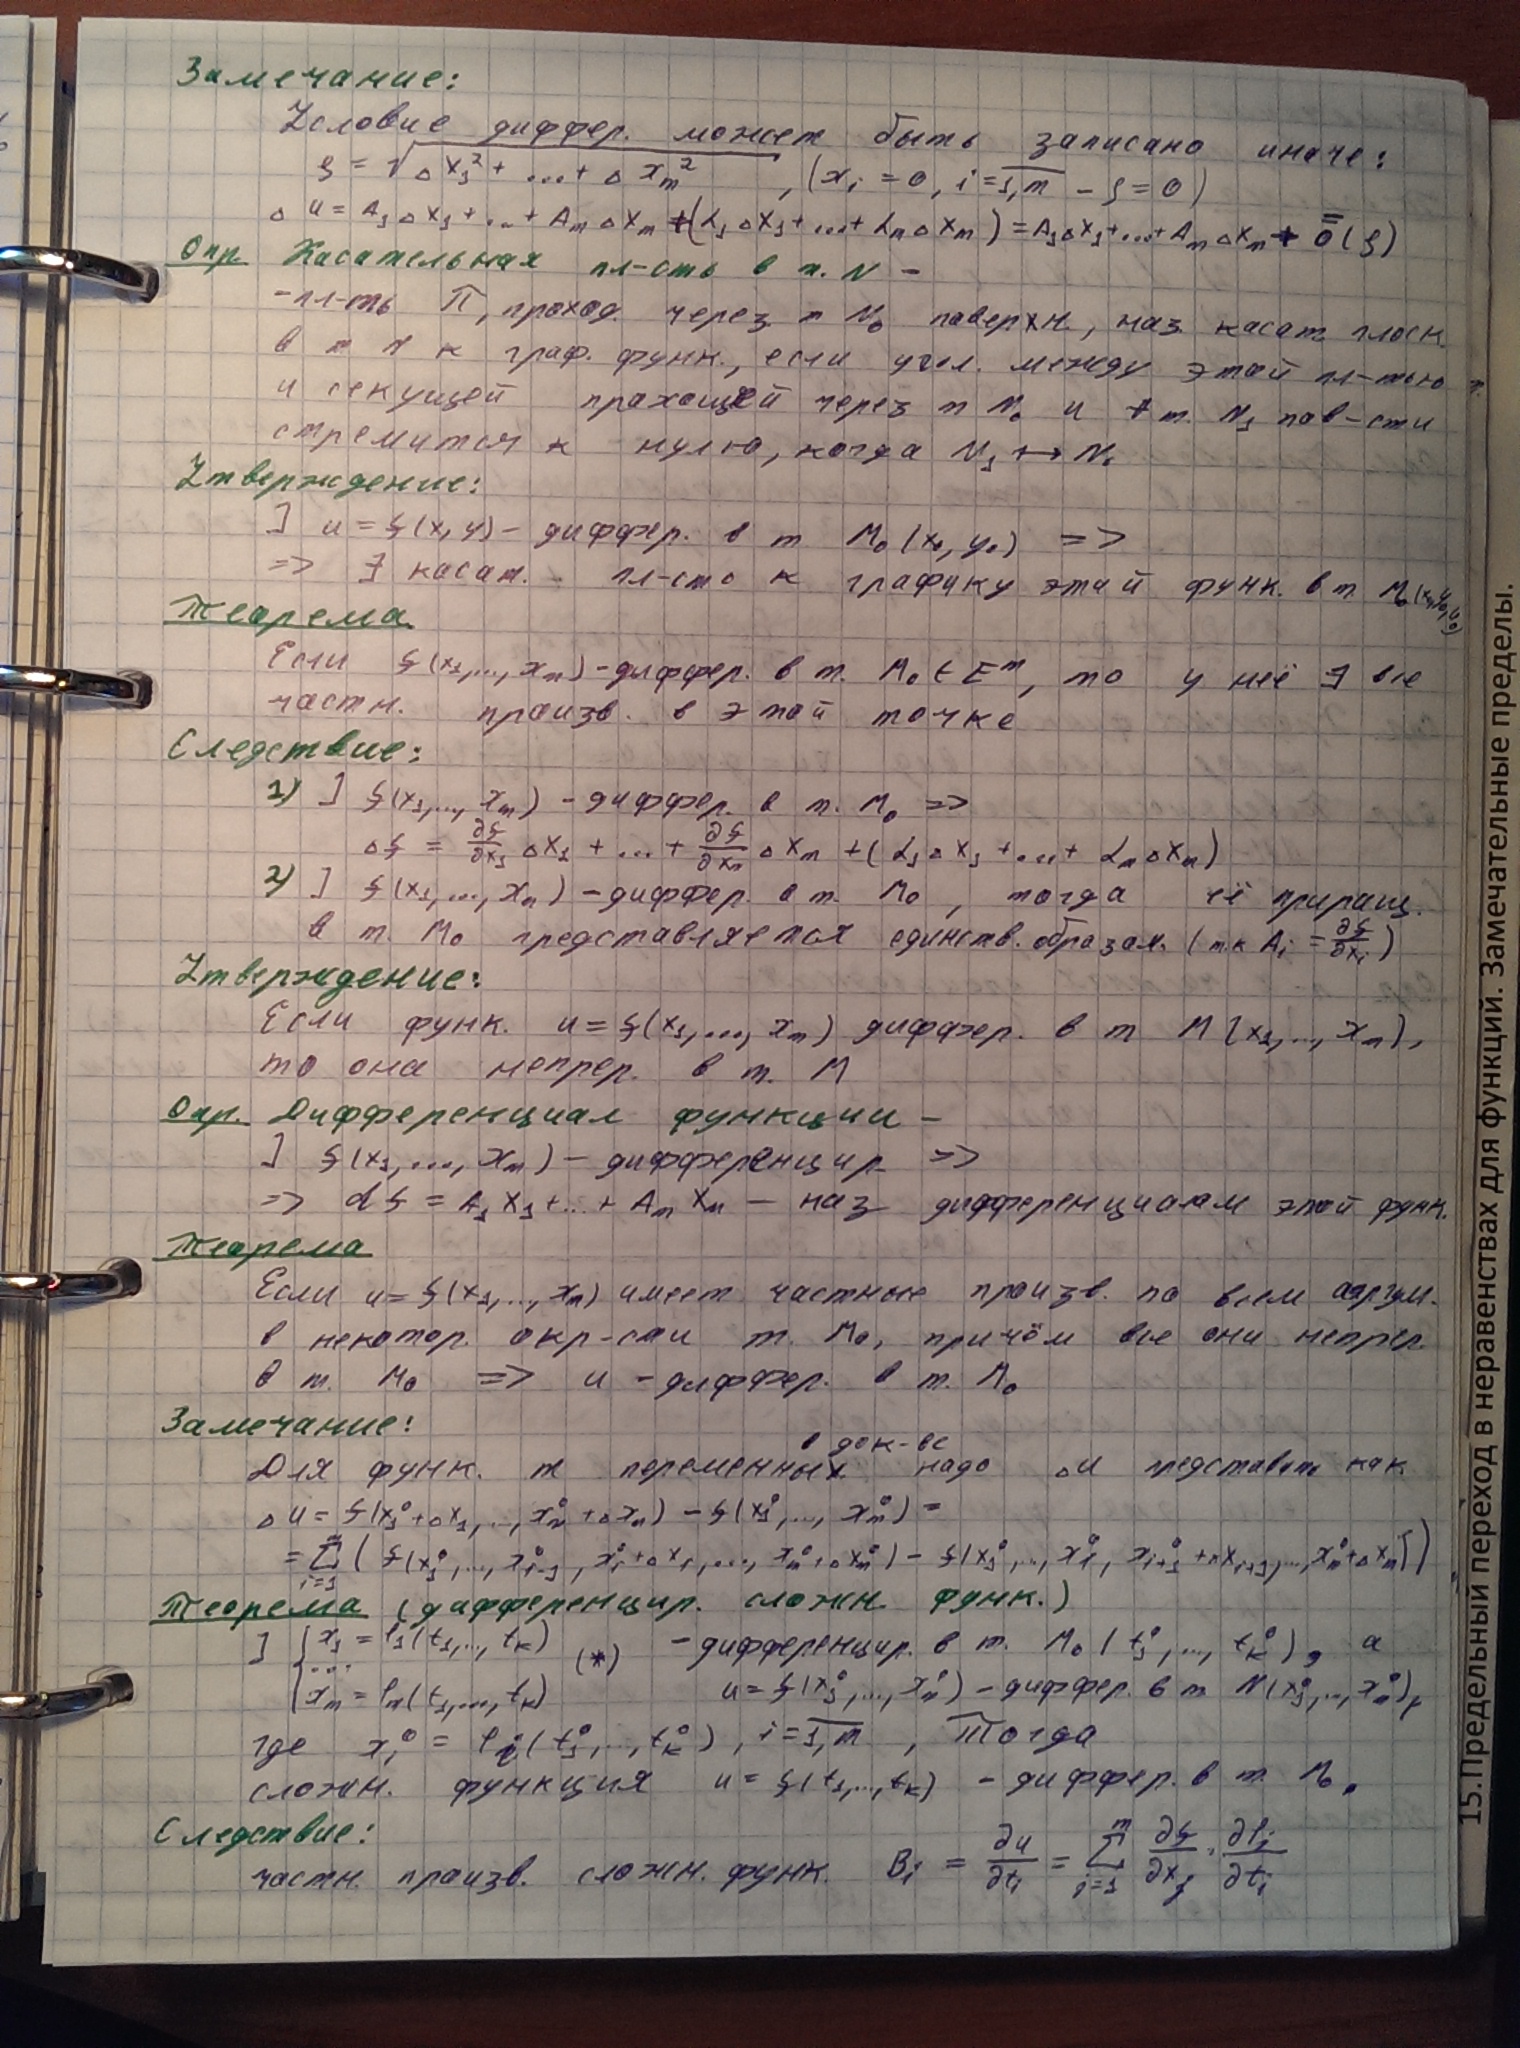 Замечание:
Условие диффер. может быть записано иначе:
ρ = √(Δx₁² + ... + Δx_m²), (x_i = 0, i = 1,m − ρ = 0)
Δu = A₁Δx₁ + ... + A_mΔx_m + (α₁Δx₁ + ... + α_mΔx_m) = A₁Δx₁ + ... + A_mΔx_m + o(ρ)
Опр. Касательная пл-сть в т. N –
– пл-ть П, проход. через т N₀ поверхн., наз касат. плоск.
в т N к граф. функ., если угол. между этой пл-тью
и секущей проходщей через т N₀ и ∀ т. N₁ пов-сти
стремится к нулю, когда N₁ ↦ N₀
Утверждение:
] u = f(x, y) – диффер. в т. M₀(x₀, y₀) =>
=> ∃ касат. пл-сто к графику этой функ. в т. M₀(x₀, y₀, u₀)
Теорема
Если f(x₁,..., x_m) – диффер. в т. M₀ ∈ E^m, то у неё ∃ все
частн. произв. в этой точке
Следствие:
1) ] f(x₁,..., x_m) – диффер. в т. M₀ =>
Δf = ∂f/∂x₁ Δx₁ + ... + ∂f/∂x_m Δx_m + (α₁Δx₁ + ... + α_mΔx_m)
2) ] f(x₁, ..., x_m) – диффер. в т. M₀, тогда её приращ.
в т. M₀ представляется единств. образом. (т.к A_i = ∂f/∂x_i)
Утверждение:
Если функ. u = f(x₁, ..., x_m) диффер. в т M(x₁,..., x_m),
то она непрер. в т. M
Опр. Дифференциал функции –
] f(x₁, ..., x_m) – дифференцир. =>
=> df = A₁x₁ + ... + A_m x_m – наз дифференциалом этой функ.
Теорема
Если u = f(x₁,..., x_m) имеет частные произв. по всем аргум.
в некотор. окр-сти т. M₀, причём все они непрер.
в т. M₀ => u – диффер. в т. M₀
Замечание:
в док-ве
Для функ. m переменных надо Δu представить как
Δu = f(x₁⁰ + Δx₁, ..., x_m⁰ + Δx_m) – f(x₁⁰, ..., x_m⁰) =
= Σ_{i=1}^m (f(x₁⁰,..., x_{i-1}⁰, x_i⁰ + Δx_i, ..., x_m⁰ + Δx_m⁰) – f(x₁⁰,..., x_i⁰, x_{i+1}⁰ + Δx_{i+1},..., x_m⁰ + Δx_m))
Теорема (дифференцир. сложн. функ.)
] { x₁ = l₁(t₁,..., t_k) (*) – дифференцир. в т. M₀(t₁⁰,..., t_k⁰), а
...
x_m = l_m(t₁,..., t_k) u = f(x₁⁰,..., x_m⁰) – диффер. в т. N(x₁⁰,..., x_m⁰),
где x_i⁰ = l_i(t₁⁰,..., t_k⁰), i = 1,m, Тогда
сложн. функция u = f(t₁,..., t_k) – диффер. в т. M₀.
Следствие:
частн. произв. сложн. функ. B_i = ∂u/∂t_i = Σ_{j=1}^m ∂f/∂x_j · ∂l_j/∂t_i
15.Предельный переход в неравенствах для функций. Замечательные пределы.